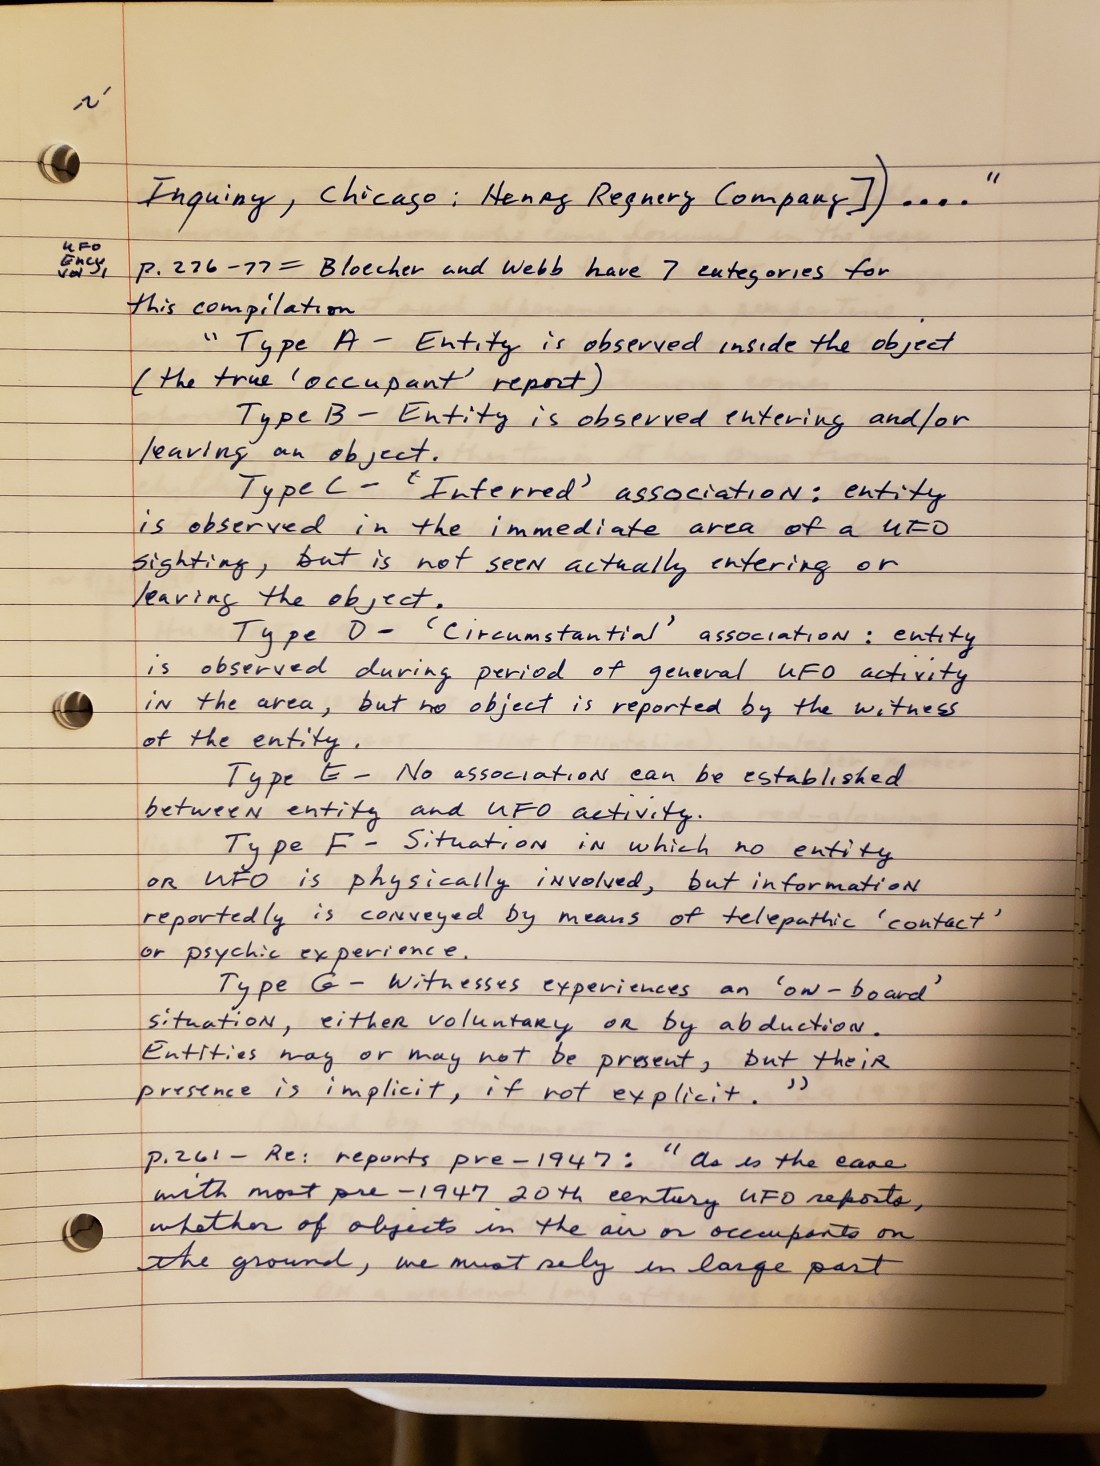 Inquiry, Chicago: Henry Regnery Company])...."
UFO
Ency,
Vol, 1
p. 276-77 = Bloecher and Webb have 7 categories for
this compilation
"Type A - Entity is observed inside the object
(the true 'occupant' report)
Type B - Entity is observed entering and/or
leaving an object.
Type C - 'Inferred' association: entity
is observed in the immediate area of a UFO
sighting, but is not seen actually entering or
leaving the object.
Type D - 'Circumstantial' association: entity
is observed during period of general UFO activity
in the area, but no object is reported by the witness
of the entity.
Type E - No association can be established
between entity and UFO activity.
Type F - Situation in which no entity
or UFO is physically involved, but information
reportedly is conveyed by means of telepathic 'contact'
or psychic experience.
Type G - Witnesses experiences an 'on-board'
situation, either voluntary or by abduction.
Entities may or may not be present, but their
presence is implicit, if not explicit."
p. 261 - Re: reports pre-1947: "As is the case
with most pre-1947 20th century UFO reports,
whether of objects in the air or occupants on
the ground, we must rely in large part